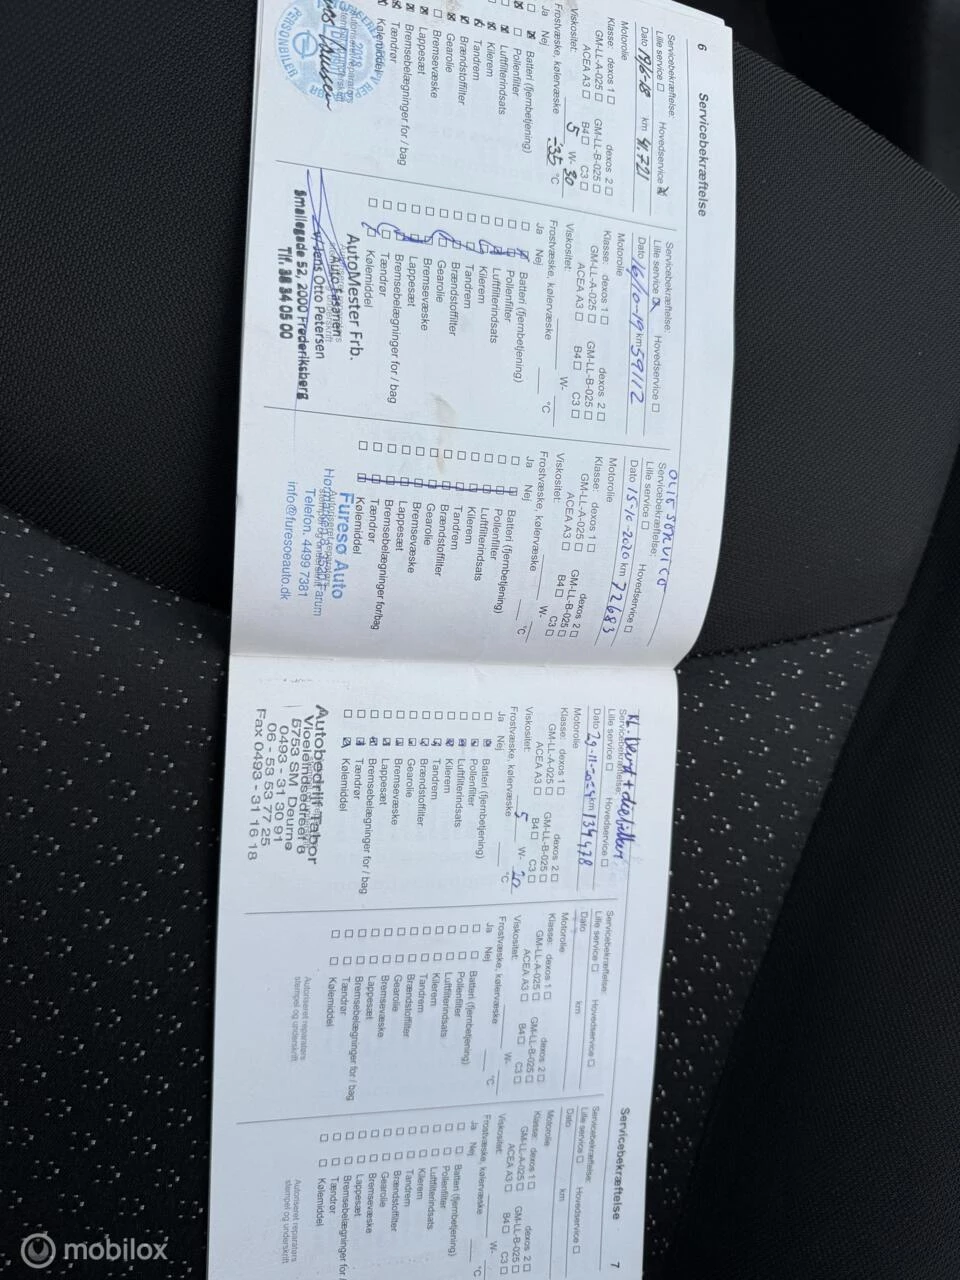 6
Servicebekræftelse
Servicebekræftelse:
Lille service Hovedservice
Dato km 41.721
Motorolie
Klasse: dexos 1 dexos 2
GM-LL-A-025 GM-LL-B-025
ACEA A3 B4 C3
Viskositet: 5 W- 30
Frostvæske, kølervæske -35 °C
Ja Nej
Batteri (fjernbetjening)
Pollenfilter
Luftfilterindsats
Kilerem
Tandrem
Brændstoffilter
Gearolie
Bremsevæske
Lappesæt
Bremsebelægninger for / bag
Tændrør
Kølemiddel
Servicebekræftelse:
Lille service Hovedservice
Dato 16/10-19 km 59112
Motorolie
Klasse: dexos 1 dexos 2
GM-LL-A-025 GM-LL-B-025
ACEA A3 B4 C3
Viskositet: W-
Frostvæske, kølervæske °C
Ja Nej
Batteri (fjernbetjening)
Pollenfilter
Luftfilterindsats
Kilerem
Tandrem
Brændstoffilter
Gearolie
Bremsevæske
Lappesæt
Bremsebelægninger for / bag
Tændrør
Kølemiddel
AutoMester Frb.
Auto Fasanen
v/ Jens Otto Petersen
Smallegade 52, 2000 Frederiksberg
Tlf. 38 34 05 00
Olie service
Servicebekræftelse:
Lille service Hovedservice
Dato 15-10-2020 km 72683
Motorolie
Klasse: dexos 1 dexos 2
GM-LL-A-025 GM-LL-B-025
ACEA A3 B4 C3
Viskositet: W-
Frostvæske, kølervæske °C
Ja Nej
Batteri (fjernbetjening)
Pollenfilter
Luftfilterindsats
Kilerem
Tandrem
Brændstoffilter
Gearolie
Bremsevæske
Lappesæt
Bremsebelægninger for/bag
Tændrør
Kølemiddel
Furesø Auto
Farum
Telefon. 4499 7381
info@furesoeauto.dk
7
Servicebekræftelse
Kl beurt +
Servicebekræftelse:
Lille service Hovedservice
Dato 29-11-2024 km 134478
Motorolie
Klasse: dexos 1 dexos 2
GM-LL-A-025 GM-LL-B-025
ACEA A3 B4 C3
Viskositet: 5 W- 20
Frostvæske, kølervæske °C
Ja Nej
Batteri (fjernbetjening)
Pollenfilter
Luftfilterindsats
Kilerem
Tandrem
Brændstoffilter
Gearolie
Bremsevæske
Lappesæt
Bremsebelægninger for / bag
Tændrør
Kølemiddel
Autobedrijf Tabor
Vloeieindsedreef 8
5753 SM Deurne
0493 - 31 30 91
06 - 53 53 77 25
Fax 0493 - 31 16 18
Servicebekræftelse:
Lille service Hovedservice
Dato km
Motorolie
Klasse: dexos 1 dexos 2
GM-LL-A-025 GM-LL-B-025
ACEA A3 B4 C3
Viskositet: W-
Frostvæske, kølervæske °C
Ja Nej
Batteri (fjernbetjening)
Pollenfilter
Luftfilterindsats
Kilerem
Tandrem
Brændstoffilter
Gearolie
Bremsevæske
Lappesæt
Bremsebelægninger for / bag
Tændrør
Kølemiddel
Autoriseret reparatørs
stempel og underskrift
Servicebekræftelse:
Lille service Hovedservice
Dato km
Motorolie
Klasse: dexos 1 dexos 2
GM-LL-A-025 GM-LL-B-025
ACEA A3 B4 C3
Viskositet: W-
Frostvæske, kølervæske °C
Ja Nej
Batteri (fjernbetjening)
Pollenfilter
Luftfilterindsats
Kilerem
Tandrem
Brændstoffilter
Gearolie
Bremsevæske
Lappesæt
Bremsebelægninger for /
Tændrør
Kølemiddel
Autoriseret reparatørs
stempel og underskrift
mobilox